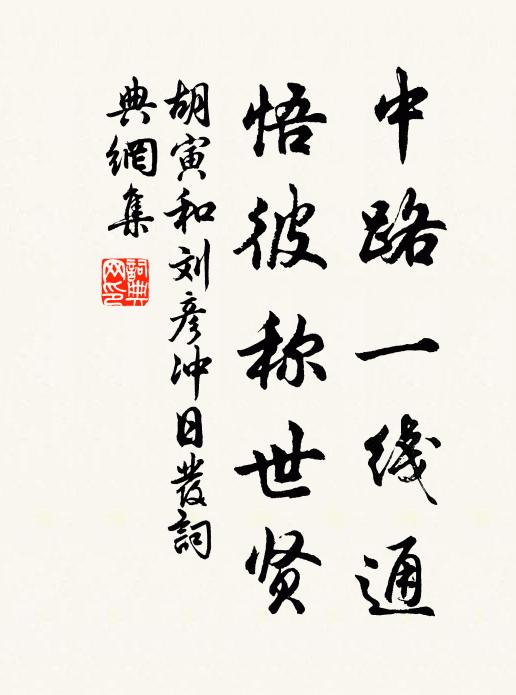 中路一线通
悟彼称世贤
胡寅和刘彦冲日发詞
典網集
詞典
网印